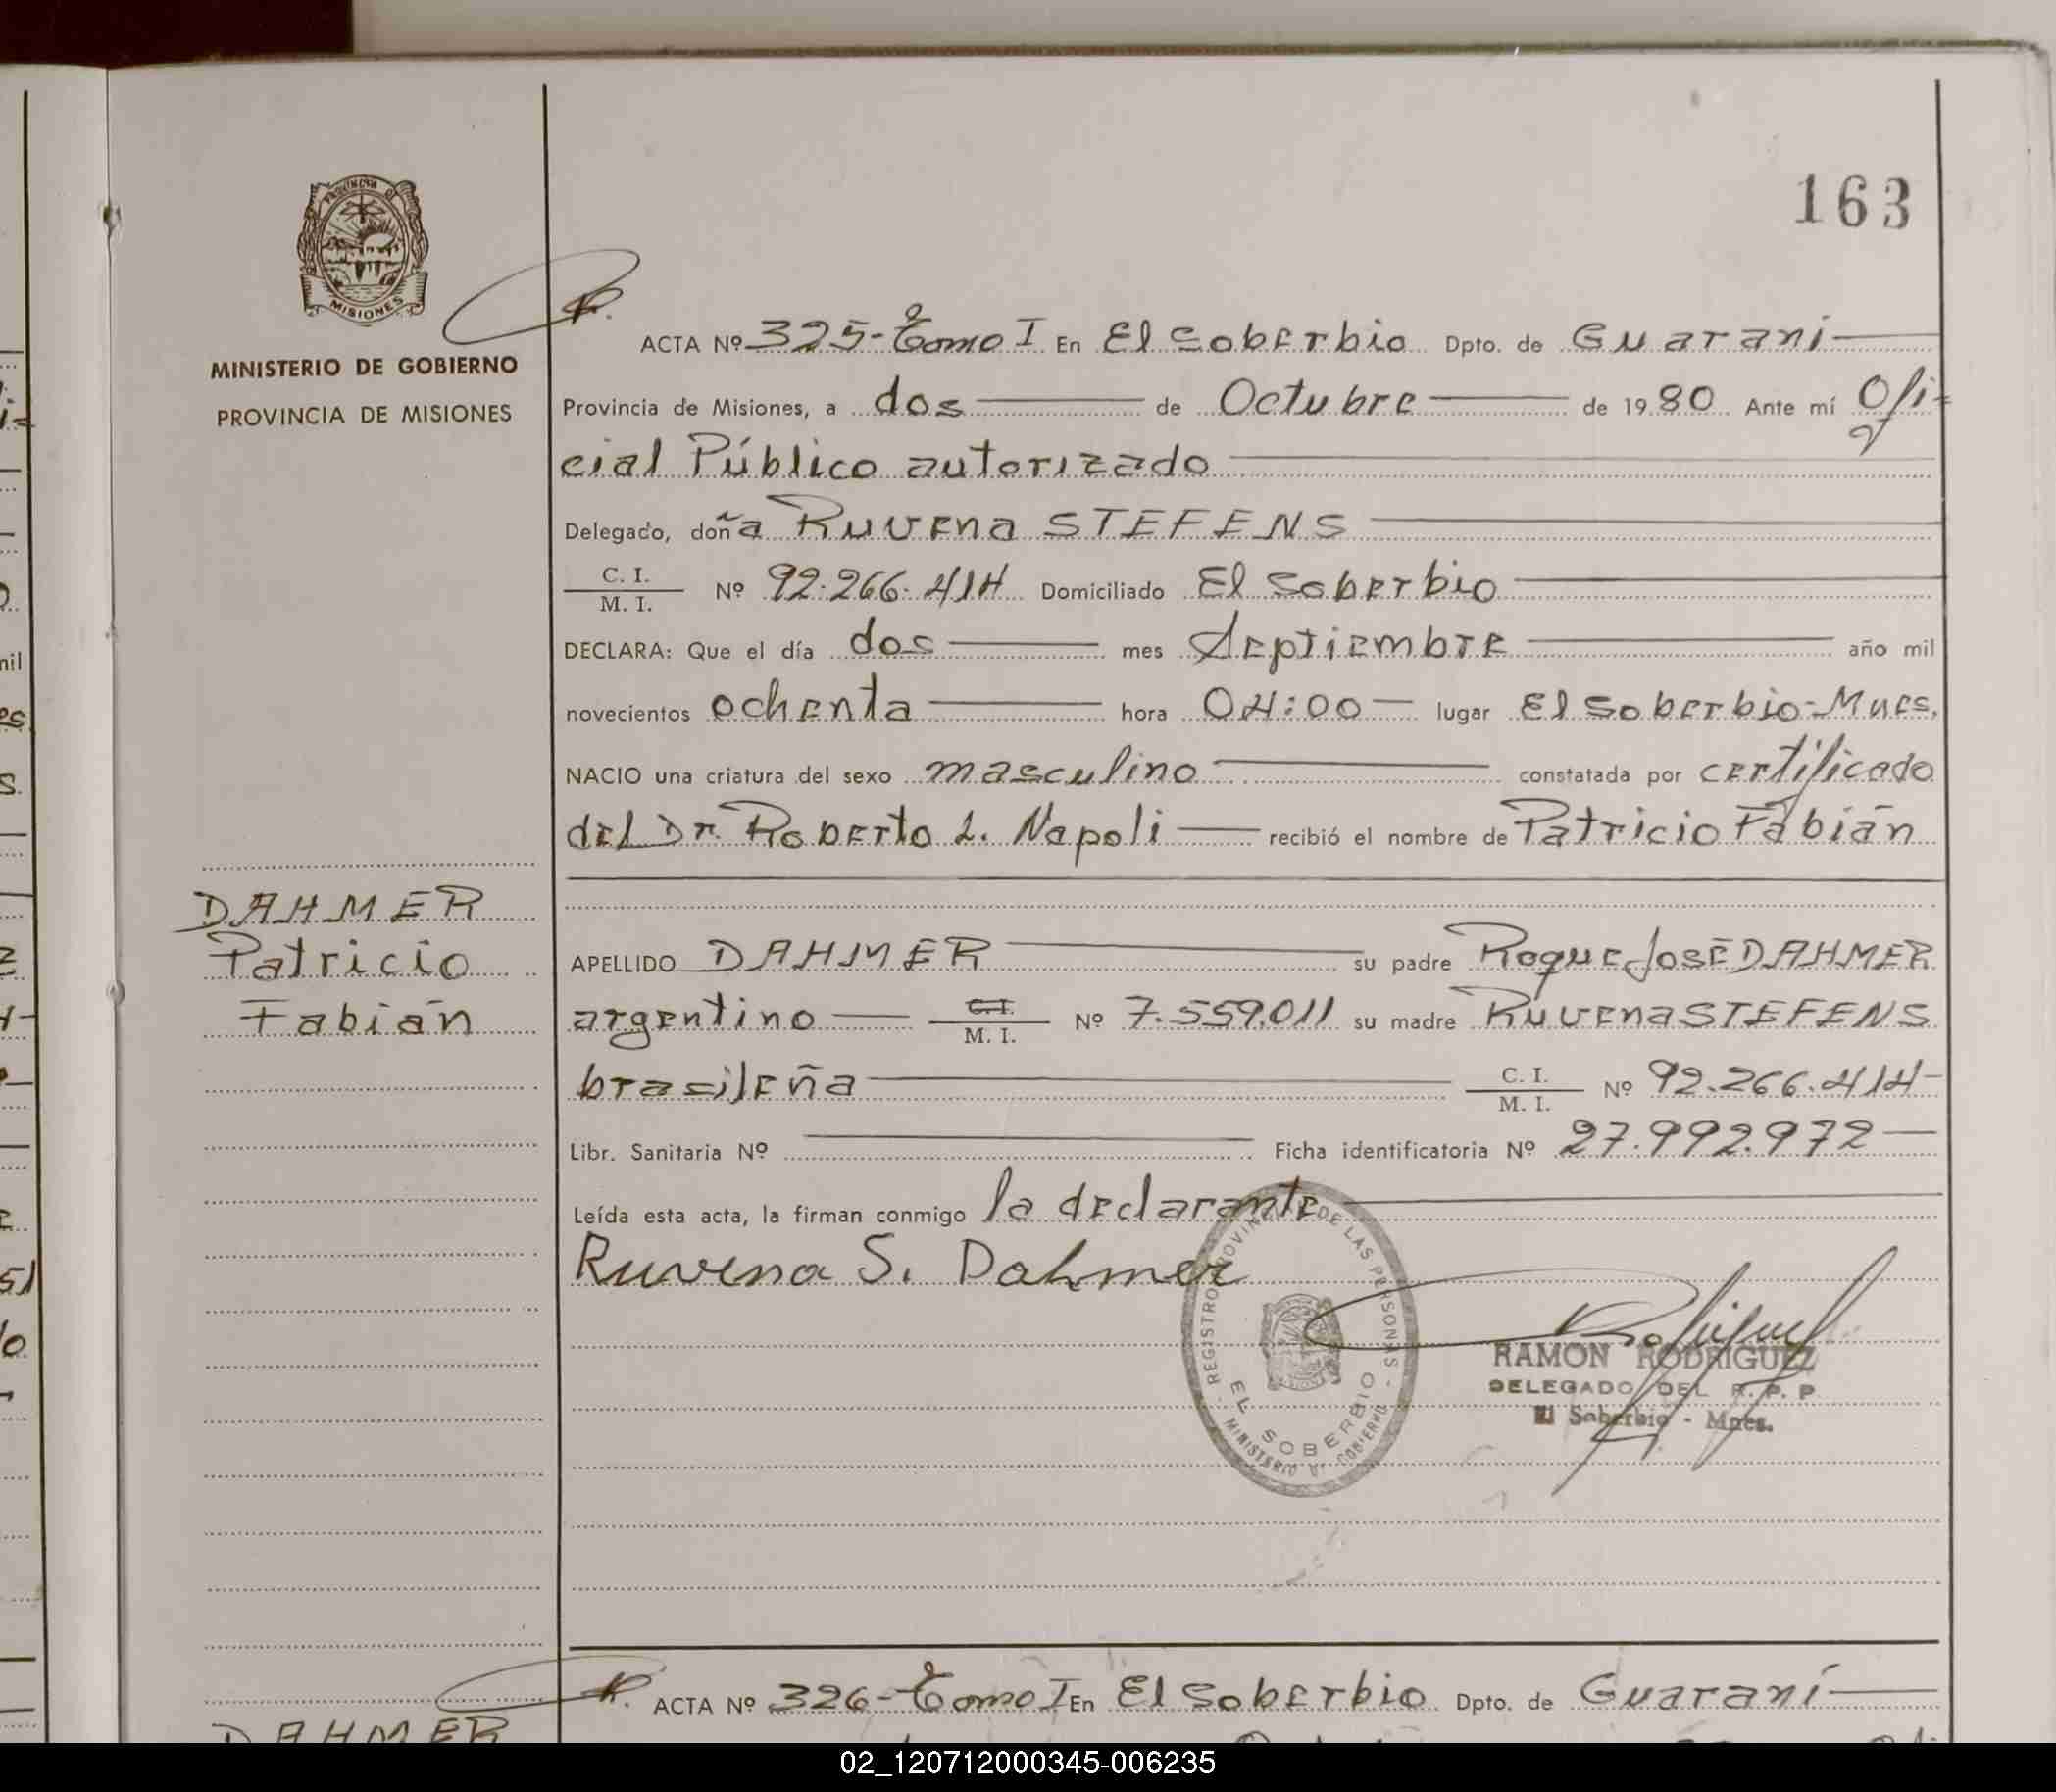 163
PROVINCIA DE
MISIONES
MINISTERIO DE GOBIERNO
PROVINCIA DE MISIONES
ACTA Nº 325-Tomo I En El Soberbio Dpto. de Guaraní
Provincia de Misiones, a dos de Octubre de 1980 Ante mí Ofi-
cial Público autorizado
Delegado, doña Ruvena STEFENS
C. I.
M. I. Nº 92.266.414 Domiciliado El Soberbio
DECLARA: Que el día dos mes Septiembre año mil
novecientos ochenta hora 04:00 lugar El Soberbio-Mnes.
NACIO una criatura del sexo masculino constatada por certificado
del Dr. Roberto L. Napoli recibió el nombre de Patricio Fabián
DAHMER
Patricio
Fabián
APELLIDO DAHMER su padre Roque José DAHMER
argentino C.I.
M. I. Nº 7.559.011 su madre Ruvena STEFENS
brasileña C. I.
M. I. Nº 92.266.414-
Libr. Sanitaria Nº Ficha identificatoria Nº 27.992.972
Leída esta acta, la firman conmigo la declarante
Ruvena S. Dahmer
REGISTRO PROVINCIAL DE LAS PERSONAS
EL SOBERBIO
MINISTERIO DE GOBIERNO
RAMON RODRIGUEZ
DELEGADO DEL R. P. P
El Soberbio - Mnes.
ACTA Nº 326-Tomo I En El Soberbio Dpto. de Guaraní
DAHMER
02_120712000345-006235